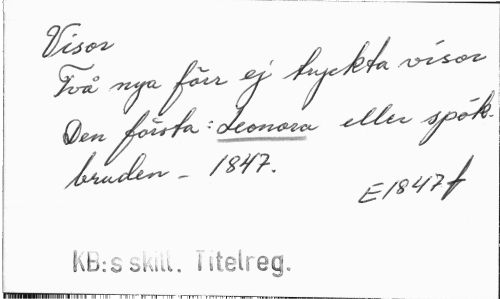 Visor
Två nya förr ej tryckta visor
Den första: Leonora eller spök-
bruden – 1847.
E1847f
KB:s skill. Titelreg.